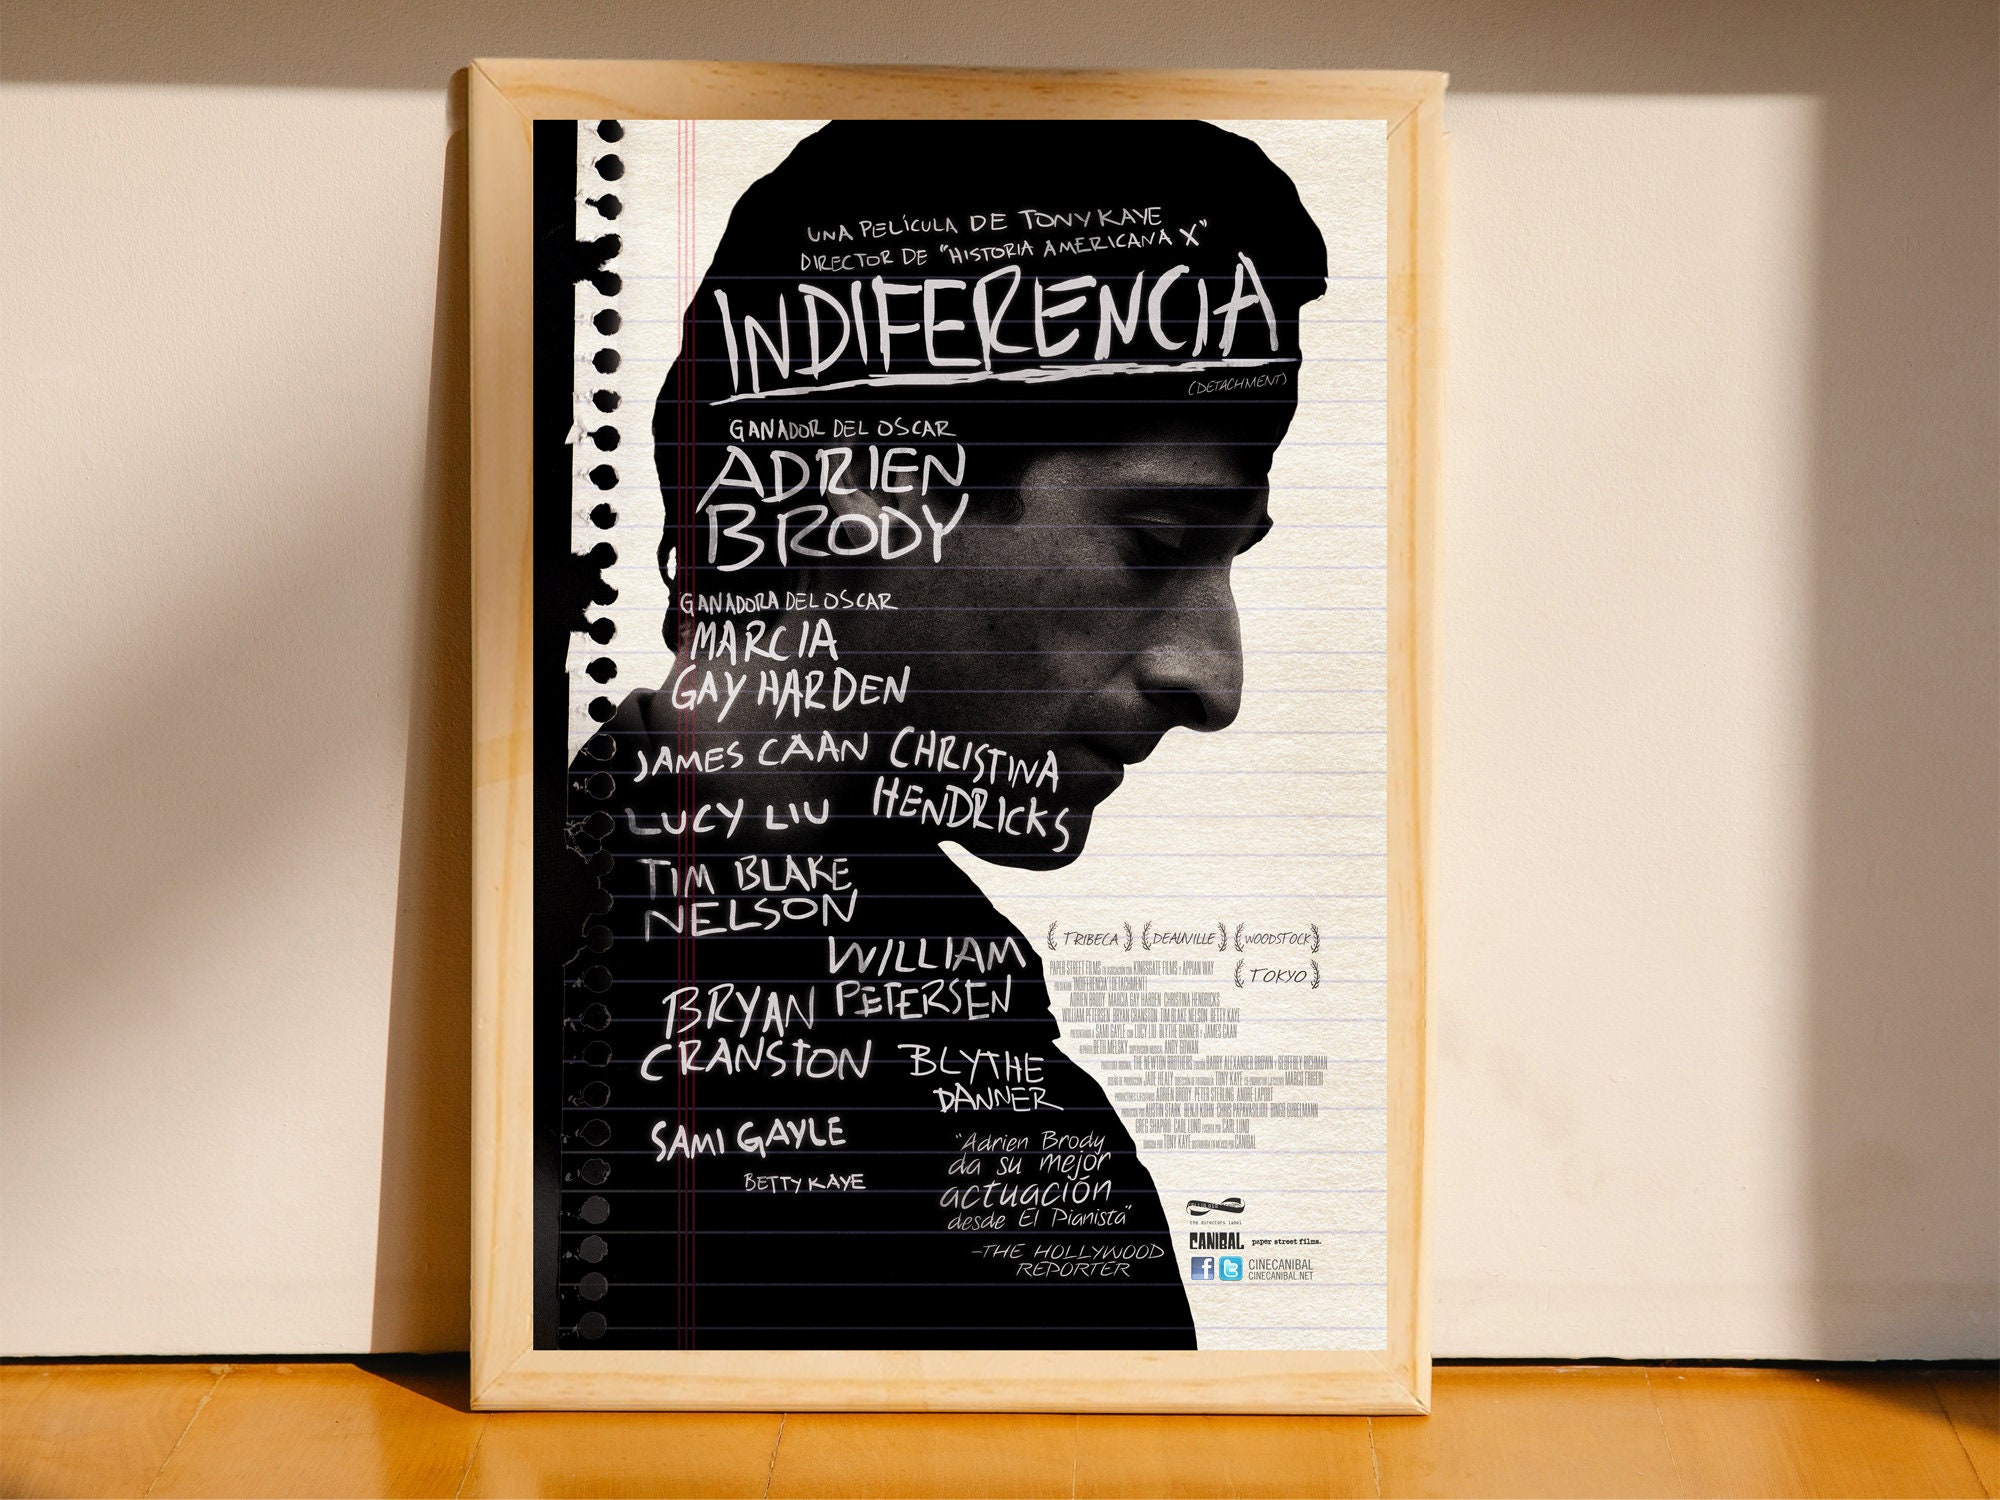 UNA PELÍCULA DE TONY KAYE
DIRECTOR DE "HISTORIA AMERICANA X"
INDIFERENCIA
(DETACHMENT)
GANADOR DEL OSCAR
ADRIEN
BRODY
GANADORA DEL OSCAR
MARCIA
GAY HARDEN
JAMES CAAN
CHRISTINA
HENDRICKS
LUCY LIU
TIM BLAKE
NELSON
WILLIAM
PETERSEN
BRYAN
CRANSTON
BLYTHE
DANNER
SAMI GAYLE
BETTY KAYE
"Adrien Brody
da su mejor
actuación
desde El Pianista"
-THE HOLLYWOOD
REPORTER
TRIBECA DEAUVILLE WOODSTOCK
TOKYO
PAPER STREET FILMS EN ASOCIACIÓN CON KINGSGATE FILMS Y APPIAN WAY
PRESENTAN "INDIFERENCIA" (DETACHMENT)
ADRIEN BRODY MARCIA GAY HARDEN CHRISTINA HENDRICKS
WILLIAM PETERSEN BRYAN CRANSTON TIM BLAKE NELSON BETTY KAYE
PRESENTANDO A SAMI GAYLE CON LUCY LIU BLYTHE DANNER Y JAMES CAAN
REPARTO BETH MELSKY SUPERVISIÓN MUSICAL ANDY GOWAN
THE NEWTON BROTHERS EDICIÓN BARRY ALEXANDER BROWN Y GEOFFREY RICHMAN
DISEÑO DE PRODUCCIÓN JADE HEALY DIRECCIÓN DE FOTOGRAFÍA TONY KAYE MARCO FRIGERI
PRODUCTORES EJECUTIVOS ADRIEN BRODY PETER STERLING ANDRE LAPORT
PRODUCIDA POR AUSTIN STARK BENJI KOHN CHRIS PAPAVASILIOU BINGO GUBELMANN
GREG SHAPIRO CARL LUND ESCRITA POR CARL LUND
DIRIGIDA POR TONY KAYE DISTRIBUIDA EN MÉXICO POR CANIBAL
the directors label
CANIBAL paper street films.
CINECANIBAL
CINECANIBAL.NET